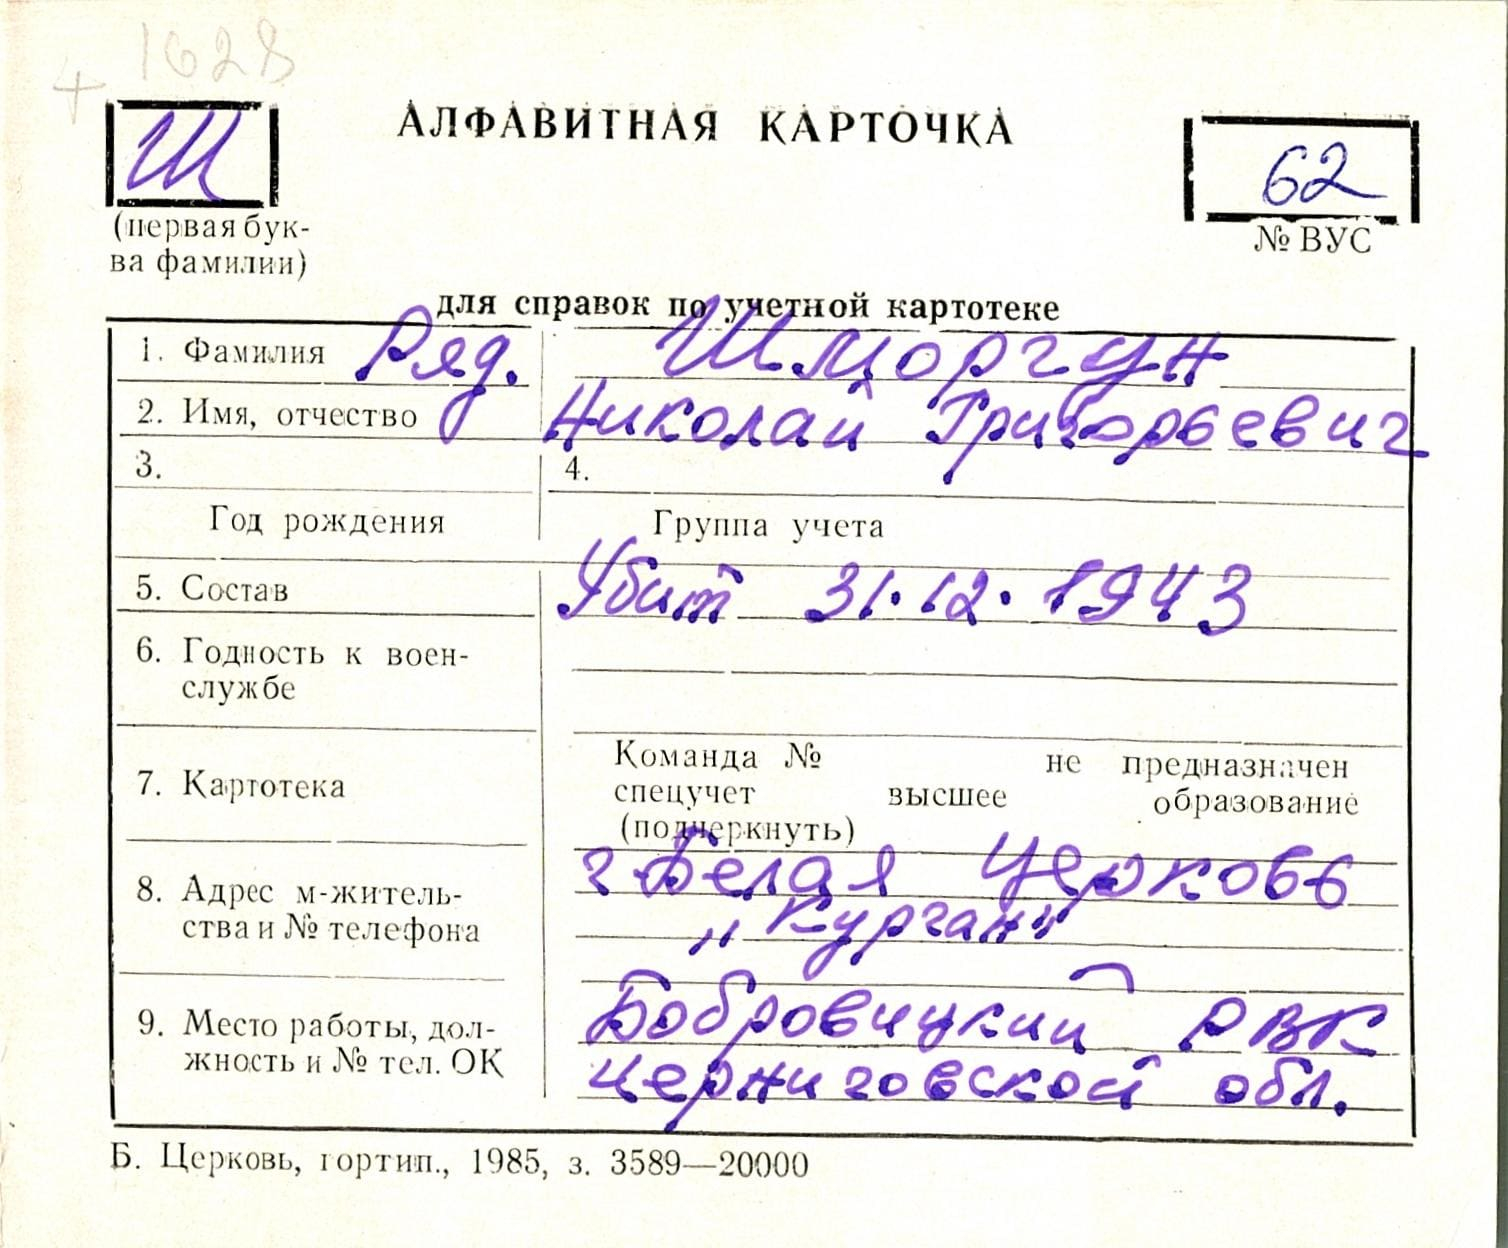 1628
+
Ш
АЛФАВИТНАЯ КАРТОЧКА
62
(первая бук-
ва фамилии)
№ ВУС
для справок по учетной картотеке
1. Фамилия Ряд. Шморгун
2. Имя, отчество Николай Григорьевич
3. 4.
Год рождения Группа учета
5. Состав Убит 31.12.1943
6. Годность к воен-
службе
7. Картотека
Команда № не предназначен
спецучет высшее образование
(подчеркнуть)
8. Адрес м-житель-
ства и № телефона
г Белая Церковь
„Курган"
9. Место работы, дол-
жность и № тел. ОК
Бобровицкий РВК
Черниговской обл.
Б. Церковь, гортип., 1985, з. 3589—20000